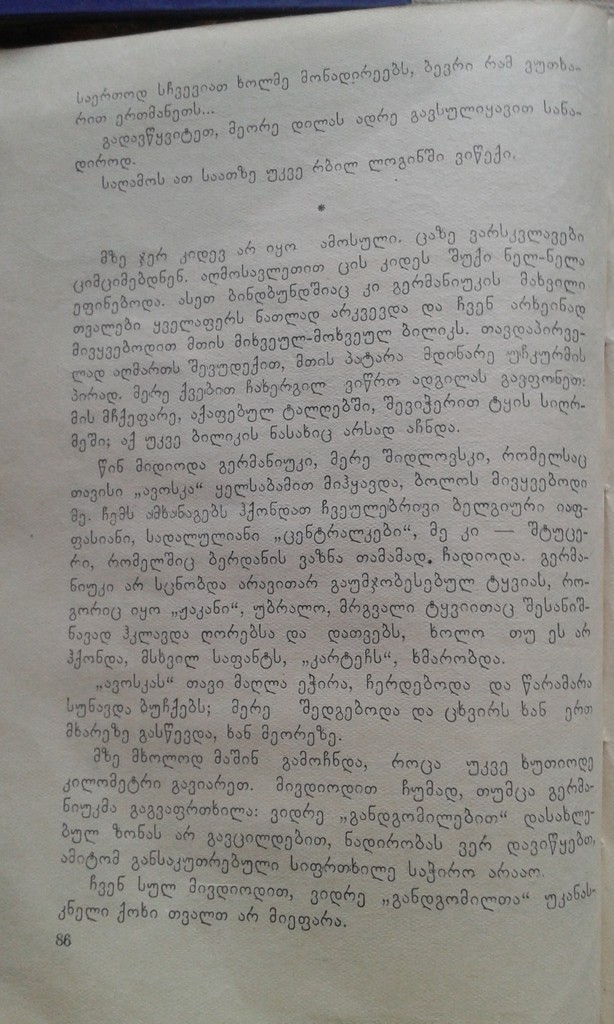 საერთოდ სჩვევიათ ხოლმე მონადირეებს, ბევრი რამ ვუთხა-
რით ერთმანეთს...
გადავწყვიტეთ, მეორე დილას ადრე გავსულიყავით სანა-
დიროდ.
საღამოს ათ საათზე უკვე რბილ ლოგინში ვიწექი.
*
მზე ჯერ კიდევ არ იყო ამოსული. ცაზე ვარსკვლავები
ციმციმებდნენ. აღმოსავლეთით ცის კიდეს შუქი ნელ-ნელა
ეფინებოდა. ასეთ ბინდბუნდშიაც კი გერმანიუკის მახვილი
თვალები ყველაფერს ნათლად არკვევდა და ჩვენ არხეინად
მივყვებოდით მთის მიხვეულ-მოხვეულ ბილიკს. თავდაპირვე-
ლად აღმართს შევუდექით, მთის პატარა მდინარე უჩკურმის
პირად. მერე ქვებით ჩახერგილ ვიწრო ადგილას გავფონეთ:
მის მჩქეფარე, აქაფებულ ტალღებში, შევიჭერით ტყის სიღრ-
მეში; აქ უკვე ბილიკის ნასახიც არსად აჩნდა.
წინ მიდიოდა გერმანიუკი, მერე შიდლოვსკი, რომელსაც
თავისი „ავოსკა“ ყელსაბამით მიჰყავდა, ბოლოს მივყვებოდი
მე. ჩემს ამხანაგებს ჰქონდათ ჩვეულებრივი ბელგიური იაფ-
ფასიანი, სადალულიანი „ცენტრალკები“, მე კი — შტუცე-
რი, რომელშიც ბერდანის ვაზნა თამამად. ჩადიოდა. გერმა-
ნიუკი არ სცნობდა არავითარ გაუმჯობესებულ ტყვიას, რო-
გორიც იყო „ჟაკანი“, უბრალო, მრგვალი ტყვიითაც შესანიშ-
ნავად ჰკლავდა ღორებსა და დათვებს, ხოლო თუ ეს არ
ჰქონდა, მსხვილ საფანტს, „კარტეჩს“, ხმარობდა.
„ავოსკას“ თავი მაღლა ეჭირა, ჩერდებოდა და წარამარა
სუნავდა ბუჩქებს; მერე შედგებოდა და ცხვირს ხან ერთ
მხარეზე გასწევდა, ხან მეორეზე.
მზე მხოლოდ მაშინ გამოჩნდა, როცა უკვე ხუთიოდე
კილომეტრი გავიარეთ. მივდიოდით ჩუმად, თუმცა გერმა-
ნიუკმა გაგვაფრთხილა: ვიდრე „განდგომილებით“ დასახლე-
ბულ ზონას არ გავცილდებით, ნადირობას ვერ დავიწყებთ,
ამიტომ განსაკუთრებული სიფრთხილე საჭირო არააო.
ჩვენ სულ მივდიოდით, ვიდრე „განდგომილთა“ უკანას-
კნელი ქოხი თვალთ არ მიეფარა.
86